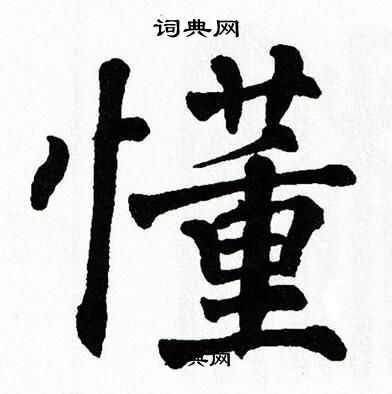 词典网
懂
典网